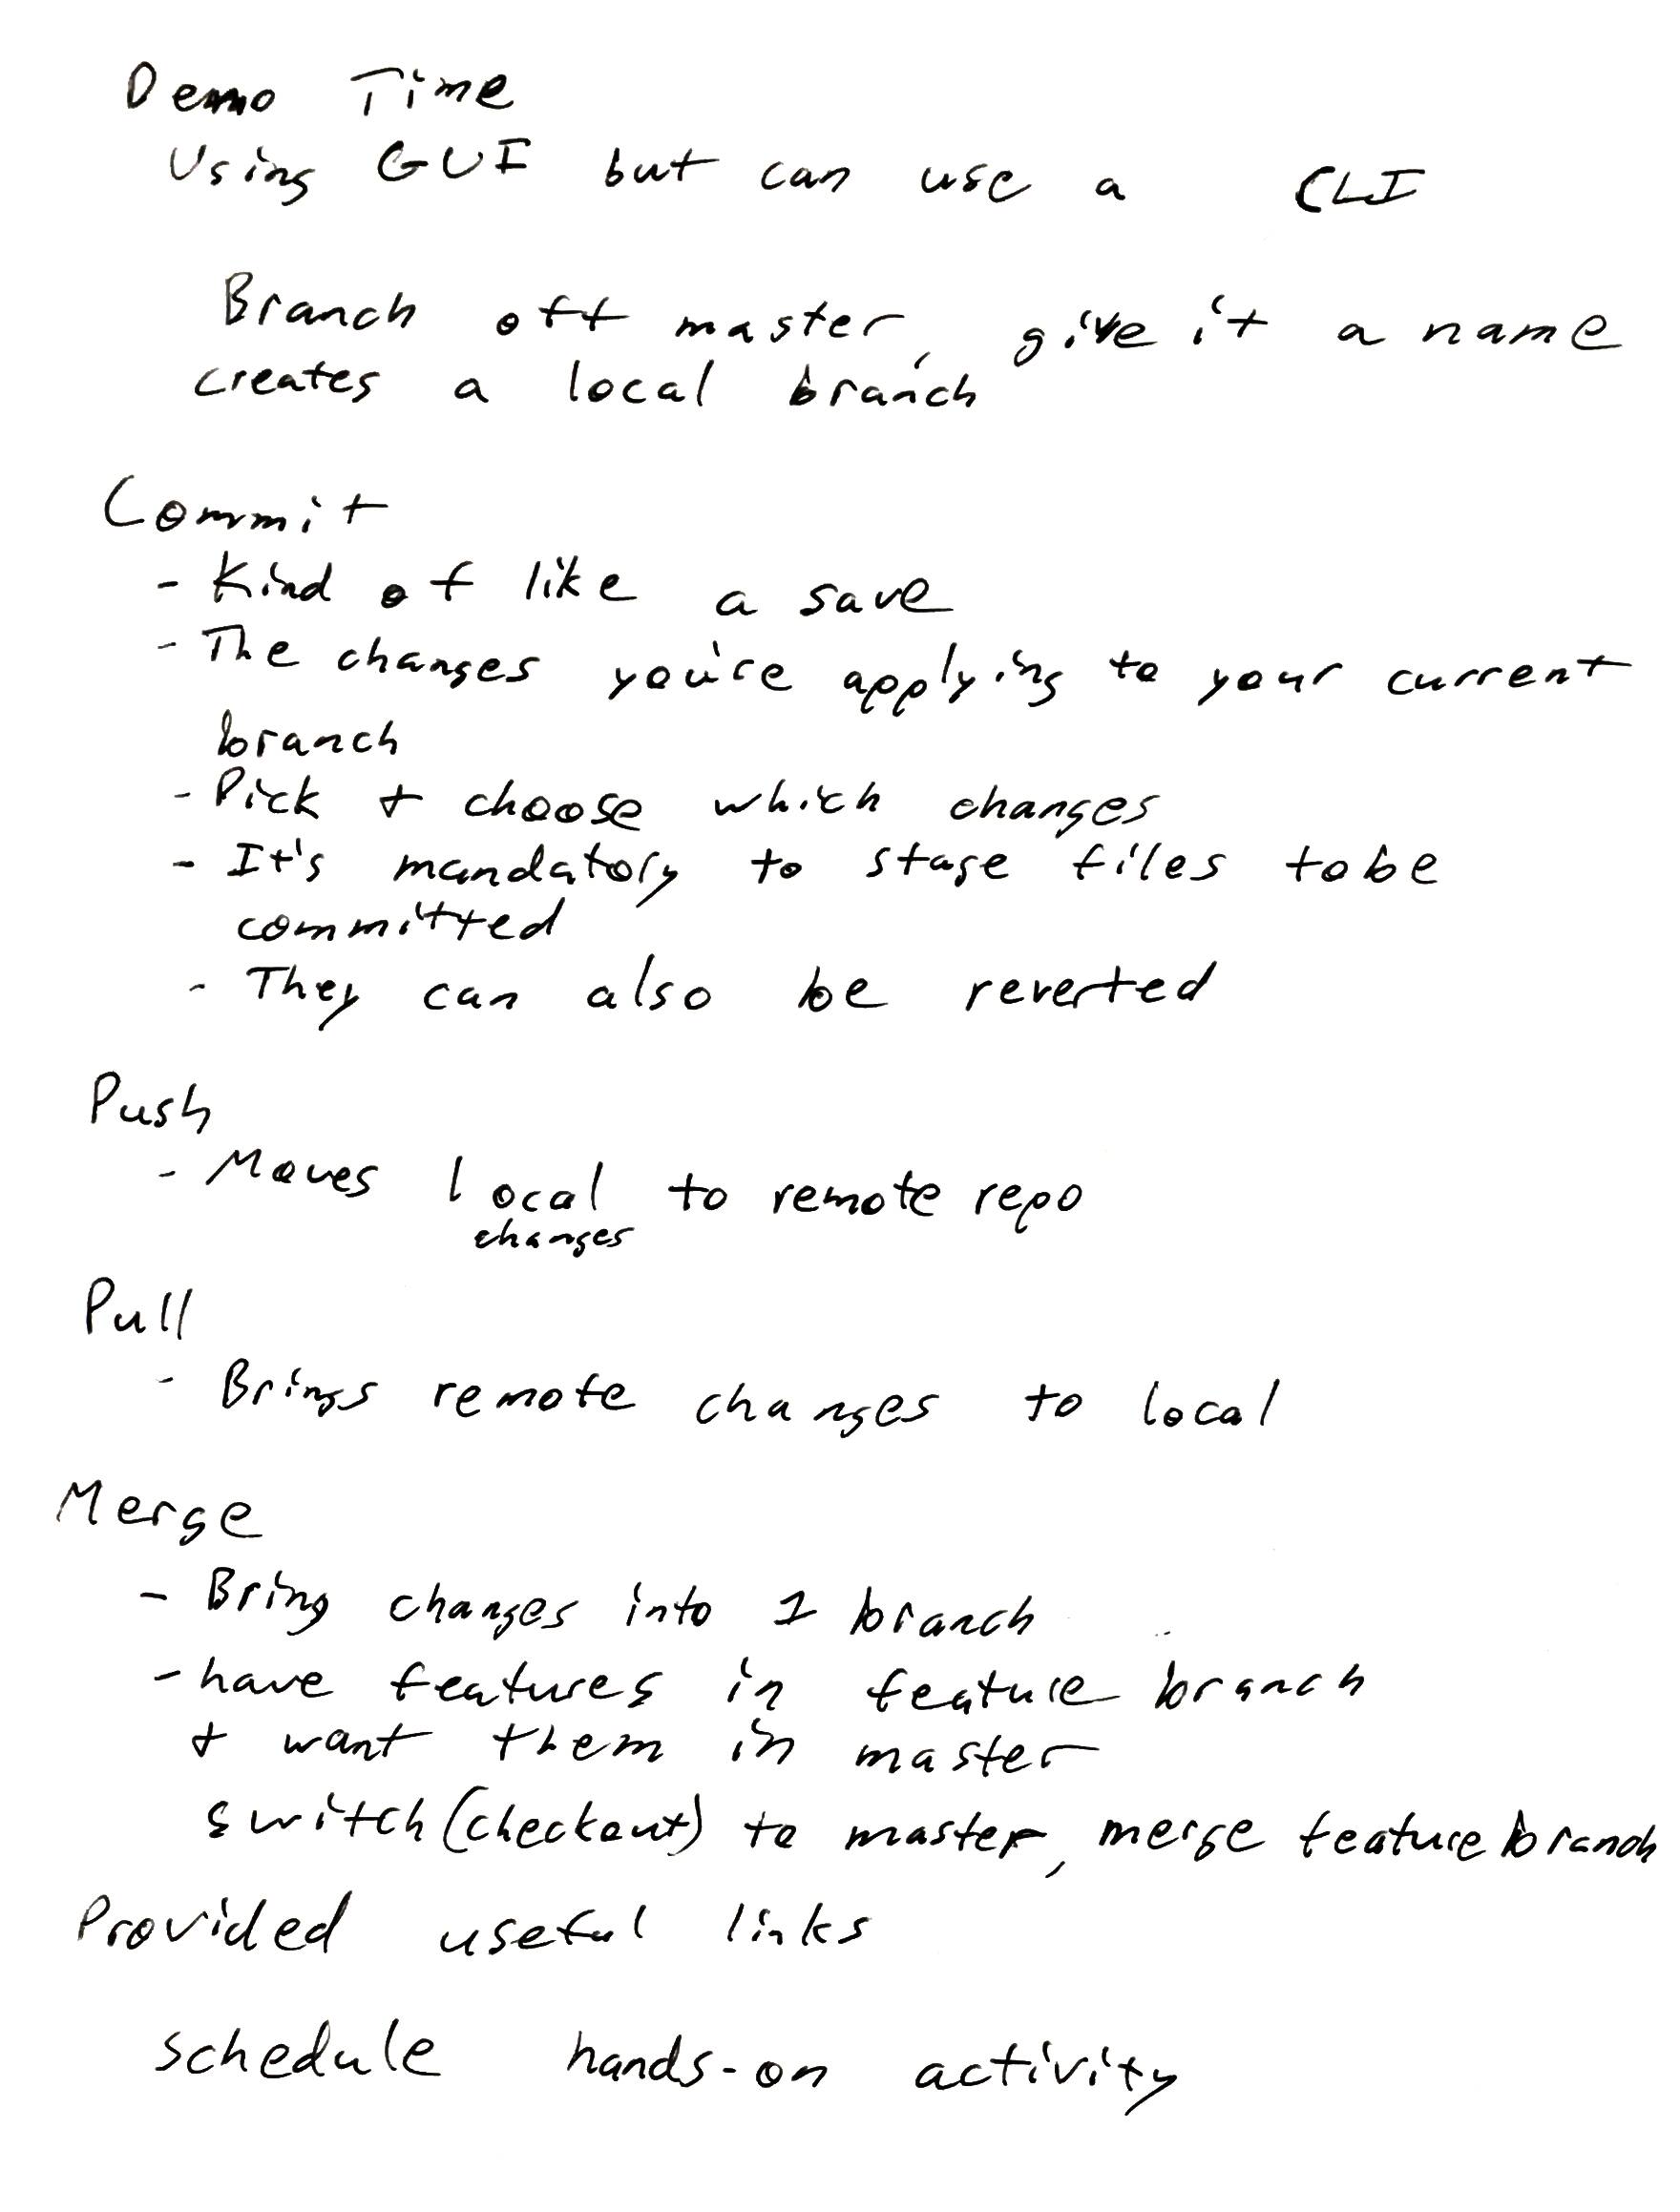 Demo Time
Using GUI but can use a CLI
Branch off master, give it a name
creates a local branch
Commit
- Kind of like a save
- The changes you're applying to your current
branch
- Pick + choose which changes
- It's mandatory to stage files to be
committed
- They can also be reverted
Push
- Moves local to remote repo
changes
Pull
- Brings remote changes to local
Merge
- Bring changes into 1 branch
- have features in feature branch
+ want them in master
switch (checkout) to master, merge feature branch
Provided useful links
schedule hands-on activity